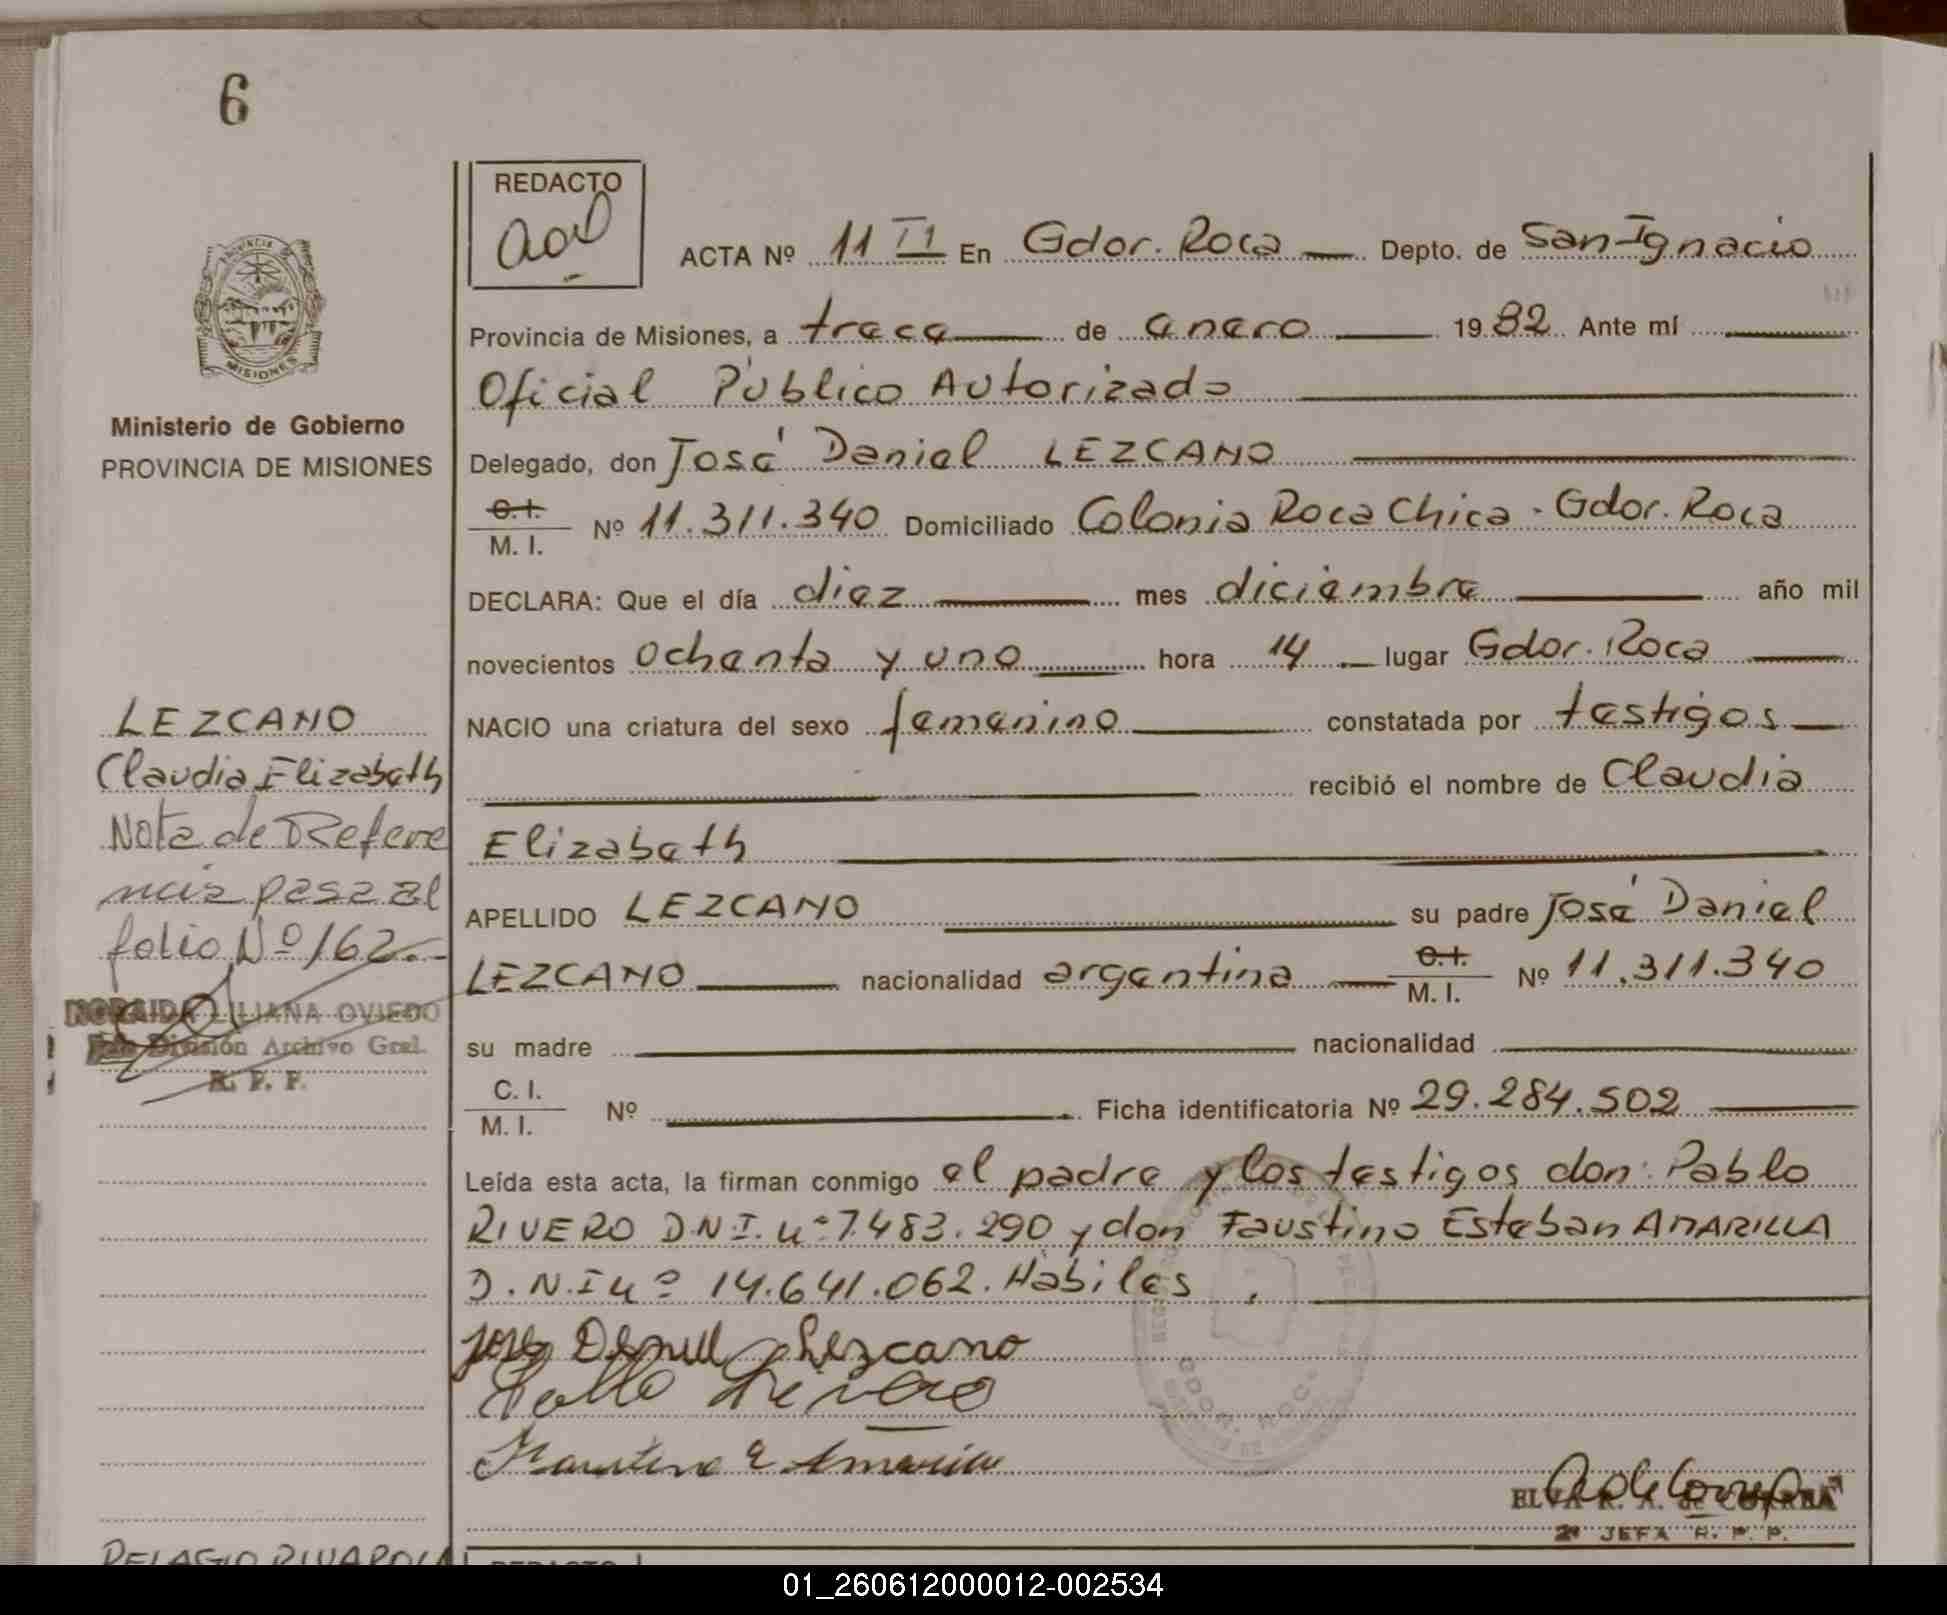 6
REDACTO
ACTA Nº 11 II En Gdor. Roca Depto. de San Ignacio
Provincia de Misiones, a trece de enero 1982 Ante mí
Oficial Público Autorizado
Delegado, don José Daniel LEZCANO
C.I.
M. I. Nº 11.311.340 Domiciliado Colonia Roca Chica - Gdor. Roca
DECLARA: Que el día diez mes diciembre año mil
novecientos ochenta y uno hora 14 lugar Gdor. Roca
NACIO una criatura del sexo femenino constatada por testigos
recibió el nombre de Claudia
Elizabeth
APELLIDO LEZCANO su padre José Daniel
LEZCANO nacionalidad argentina C.I.
M. I. Nº 11.311.340
su madre nacionalidad
C. I.
M. I. Nº Ficha identificatoria Nº 29.284.502
Leída esta acta, la firman conmigo el padre y los testigos don: Pablo
RIVERO D.N.I. nº 7.483.290 y don Faustino Esteban AMARILLA
D.N.I nº 14.641.062. Hábiles
Jose Daniel Lezcano
Pablo Rivero
Faustino E Amarilla
ELVA R. A. de CORREA
2ª JEFA R. P. P.
PROVINCIA DE
MISIONES
Ministerio de Gobierno
PROVINCIA DE MISIONES
LEZCANO
Claudia Elizabeth
Nota de Refere
ncia pasa al
folio Nº 162.-
NORAIDA LILIANA OVIEDO
Jefe División Archivo Gral.
R. P. P.
PELAGIO RIVAROLA
REDACTO
01_260612000012-002534